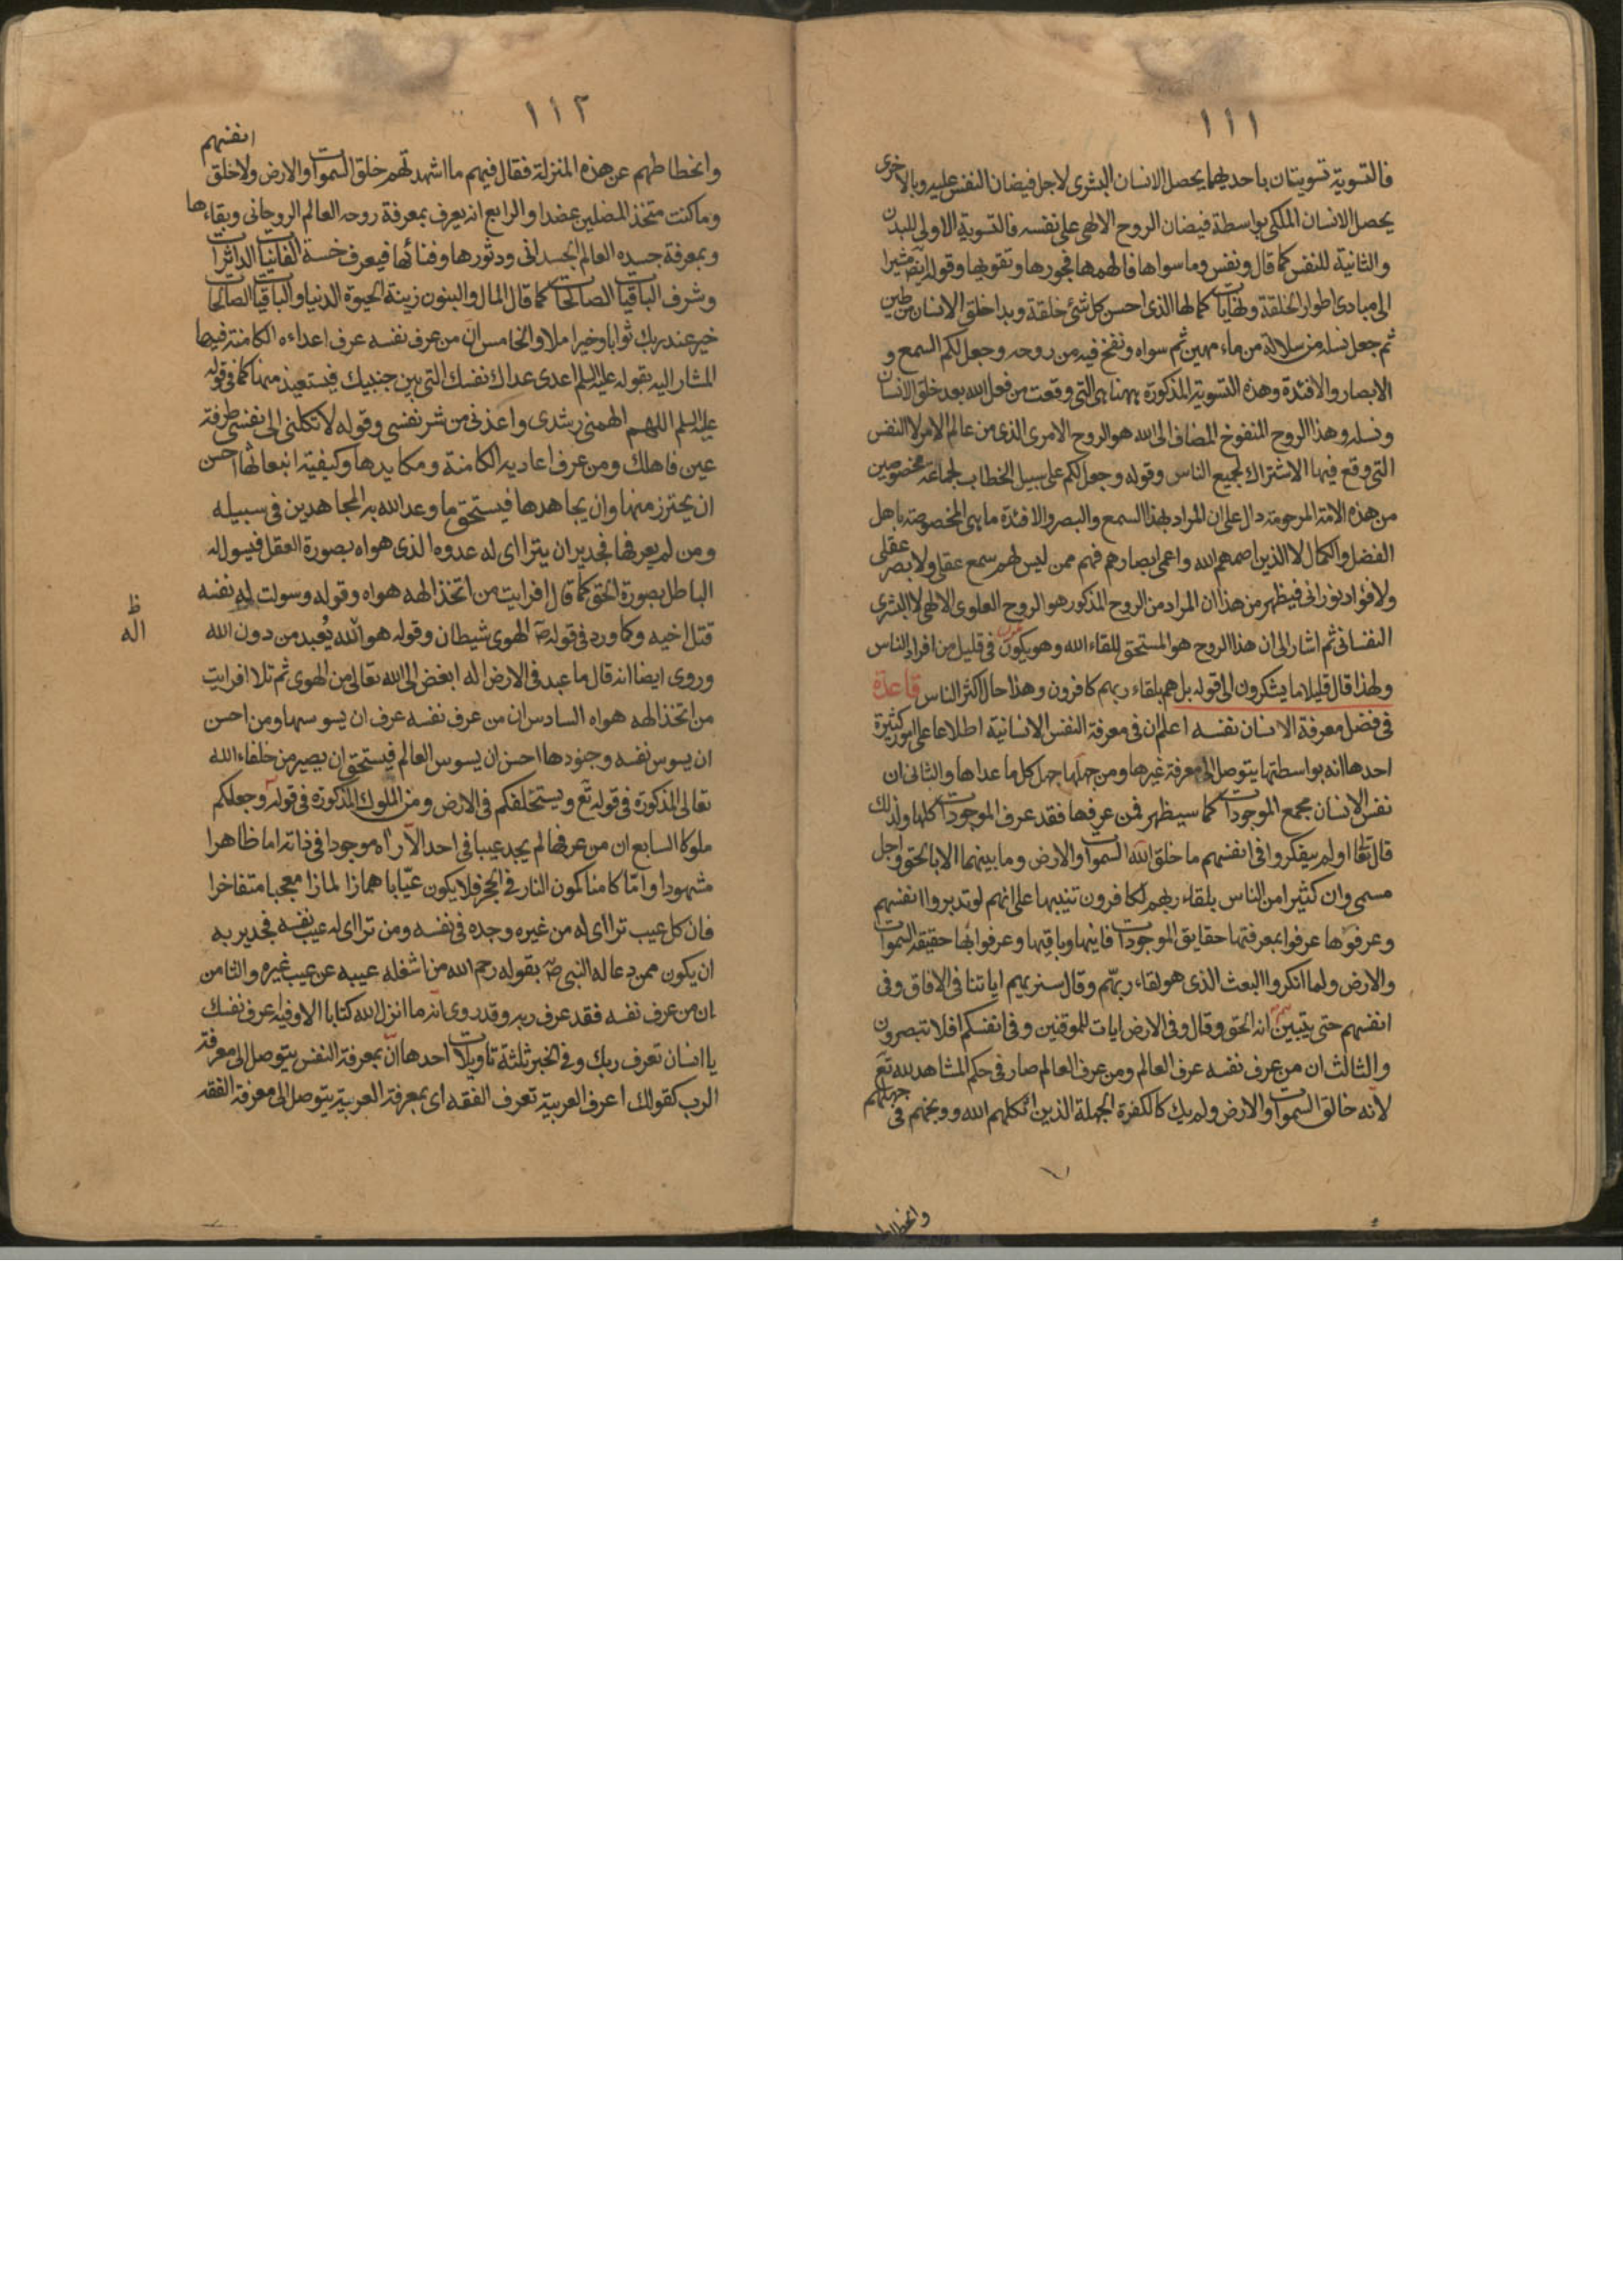 ١١١
فالتسوية تسويتان باحديهما يحصل الانسان البشرى لاجل فيضان النفس عليه وبالاخرى
يحصل الانسان الملكى بواسطة فيضان الروح الالهى على نفسه فالتسوية الاولى للبدن
والثانية للنفس كما قال ونفس وما سواها فالهمها فجورها وتقويها وقوله ايضا مشيرا
الى مبادى اطوار الخلقة ونهايات كمالها الذى احسن كل شئ خلقة وبدا خلق الانسان من طين
ثم جعل نسله من سلالة من ماء مهين ثم سواه ونفخ فيه من روحه وجعل لكم السمع و
الابصار والافئدة وهذه التسوية المذكورة ههنا هى التى وقعت من فعل الله بعد خلق الانسان
ونسله وهذا الروح المنفوخ المضاف الى الله هو الروح الامرى الذى من عالم الامر لا النفس
التى وقع فيها الاشتراك لجميع الناس وقوله وجعل لكم على سبيل الخطاب لجماعة مخصوصين
من هذه الامة المرحومة دال على ان المراد بهذا السمع والبصر والافئدة ما هى المخصوصة باهل
الفضل والكمال لا الذين اصمهم الله واعمى ابصارهم فهم ممن ليس لهم سمع عقلى ولا بصر عقلى
ولا فؤاد نورانى فيظهر من هذا ان المراد من الروح المذكور هو الروح العلوى الالهى لا البشرى
النفسانى ثم اشار الى ان هذا الروح هو المستحق للقاء الله وهو يكون فى قليل من افراد الناس
ولهذا قال قليلا ما يشكرون الى قوله بل هم بلقاء ربهم كافرون وهذا حال اكثر الناس قاعدة
فى فضل معرفة الانسان نفسه اعلم ان فى معرفة النفس الانسانية اطلاعا على امور كثيرة
احدها انه بواسطتها يتوصل الى معرفة غيرها ومن جهلها جهل كل ما عداها والثانى ان
نفس الانسان مجمع الموجودات كما سيظهر فمن عرفها فقد عرف الموجودات كلها ولذلك
قال تعالى اولم يتفكروا فى انفسهم ما خلق الله السموات والارض وما بينهما الا بالحق واجل
مسمى وان كثيرا من الناس بلقاء ربهم لكافرون تنبيها على انهم لو تدبروا انفسهم
وعرفوها عرفوا بمعرفتها حقايق الموجودات فانيها وباقيها وعرفوا بها حقيقة السموات
والارض ولما انكروا البعث الذى هو لقاء ربهم وقال سنريهم اياتنا فى الافاق وفى
انفسهم حتى يتبين لهم انه الحق وقال وفى الارض ايات للموقنين وفى انفسكم افلا تبصرون
والثالث ان من عرف نفسه عرف العالم ومن عرف العالم صار فى حكم المشاهد لله تع
لانه خالق السموات والارض ولم يك كالكفرة الجهلة الذين انكلهم الله ووبخهم فى جهلهم
وانحطاطهم
١١٢
وانحطاطهم عن هذه المنزلة فقال فيهم ما اشهدتهم خلق السموات والارض ولا خلق انفسهم
وما كنت متخذ المضلين عضدا والرابع انه يعرف بمعرفة روحه العالم الروحانى وبقاءها
وبمعرفة جسده العالم الجسدانى ودثورها وفنائها فيعرف خسة الفانيات الداثرات
وشرف الباقيات الصالحات كما قال المال والبنون زينة الحيوة الدنيا والباقيات الصالحات
خير عند ربك ثوابا وخير املا والخامس ان من عرف نفسه عرف اعداءه الكامنة فيها
المشار اليه بقوله عليه السلم اعدى عداك نفسك التى بين جنبيك فيستعيذ منها كما فى قوله
عليه السلم اللهم الهمنى رشدى واعذنى من شر نفسى وقوله لا تكلنى الى نفسى طرفة
عين فاهلك ومن عرف اعاديه الكامنة ومكايدها وكيفية انبعاثها احسن
ان يحترز منها وان يجاهدها فيستحق ما وعد الله به المجاهدين فى سبيله
ومن لم يعرفها فجدير ان يتراءى له عدوه الذى هواه بصورة العقل فيسول له
الباطل بصورة الحق كما قال افرايت من اتخذ الهه هواه وقوله وسولت له نفسه
قتل اخيه وكما ورد فى قوله ص الهوى شيطان وقوله هو الله يعبد من دون الله
ظ
اله
وروى ايضا انه قال ما عبد فى الارض اله ابغض الى الله تعالى من الهوى ثم تلا افرايت
من اتخذ الهه هواه السادس ان من عرف نفسه عرف ان يسوسها ومن احسن
ان يسوس نفسه وجنودها احسن ان يسوس العالم فيستحق ان يصير من خلفاء الله
تعالى المذكورة فى قوله تع ويستخلفكم فى الارض ومن الملوك المذكورة فى قوله وجعلكم
ملوكا السابع ان من عرفها لم يجد عيبا فى احد الا راه موجودا فى ذاته اما ظاهرا
مشهودا واما كامنا كمون النار فى الحجر فلا يكون عيابا همازا لمازا معجبا متفاخرا
فان كل عيب تراءى له من غيره وجده فى نفسه ومن تراءى له عيب نفسه فجدير به
ان يكون ممن دعا له النبى ص بقوله رحم الله من اشغله عيبه عن عيب غيره والثامن
ان من عرف نفسه فقد عرف ربه وقد روى انه ما انزل الله كتابا الا وفيه اعرف نفسك
يا انسان تعرف ربك وفى الخبر ثلثة تاويلات احدها ان بمعرفة النفس يتوصل الى معرفة
الرب كقولك اعرف العربية تعرف الفقه اى بمعرفة العربية يتوصل الى معرفة الفقه